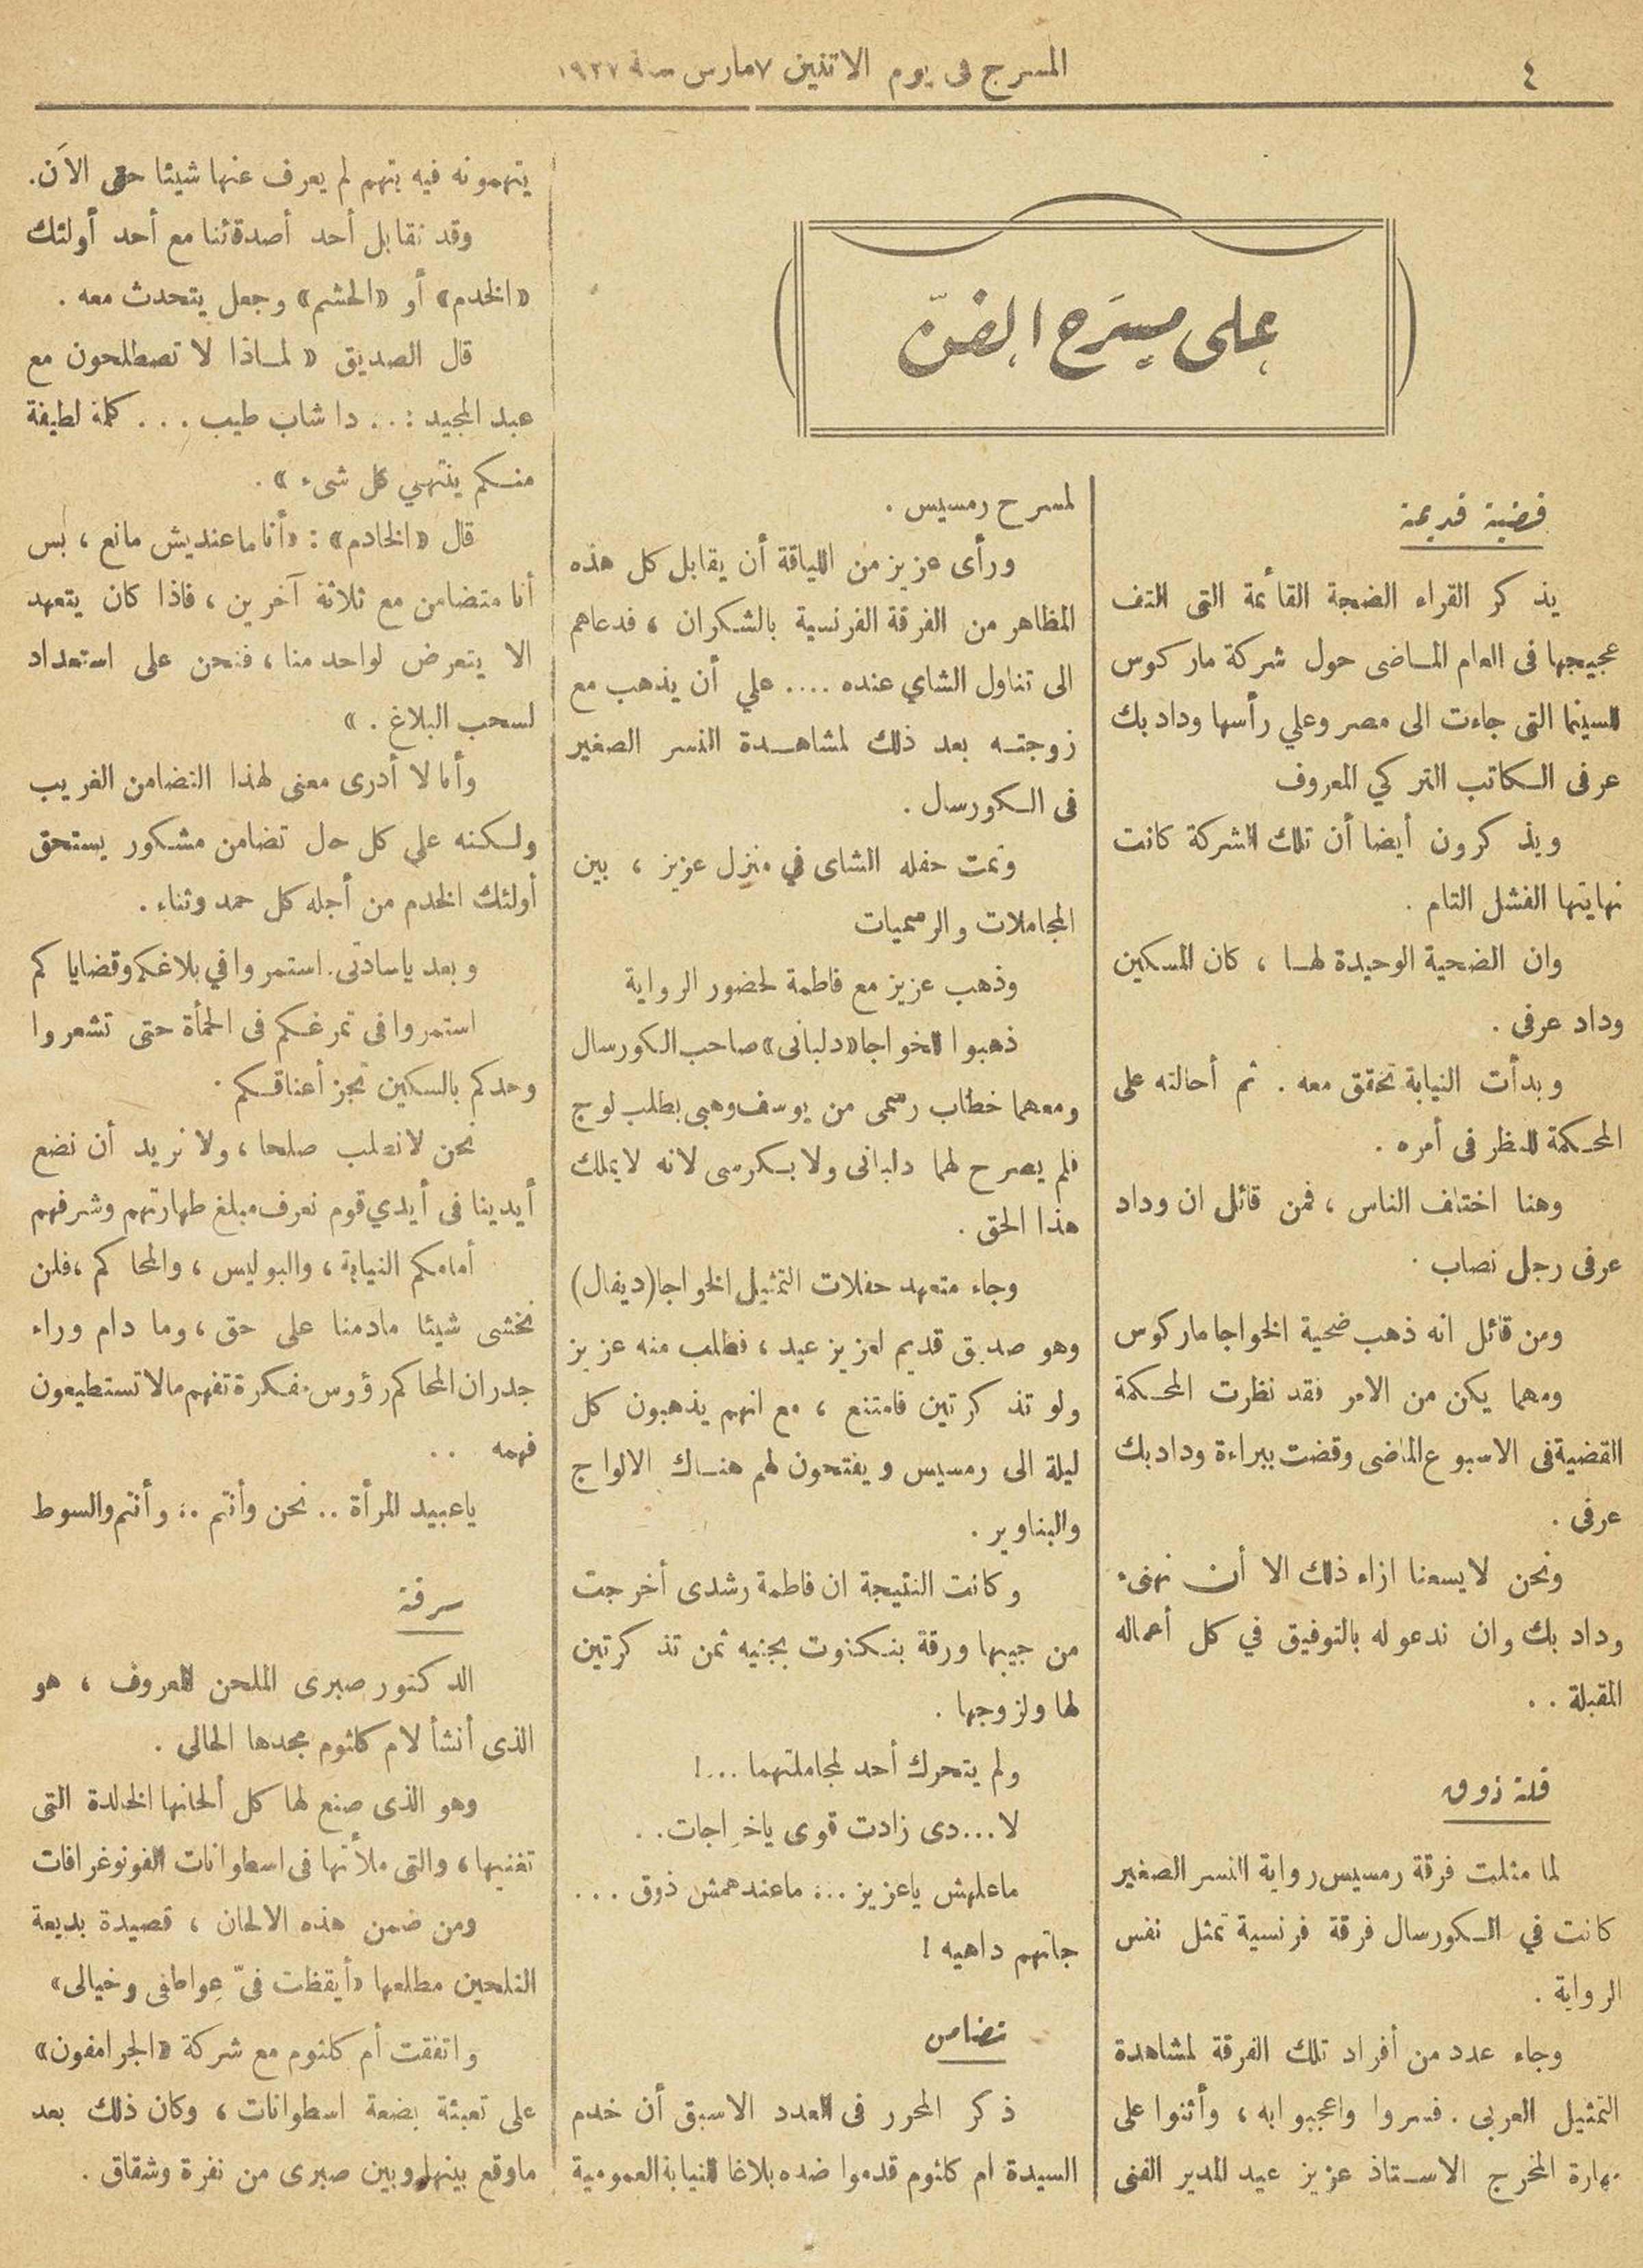 ٤
المسرح فى يوم الاثنين ٧ مارس سنة ١٩٢٧
على مسرح الفن
قضية قديمة
يذكر القراء الضجة القائمة التى التف
عجيجها فى العام الماضى حول شركة ماركوس
للسينما التى جاءت الى مصر وعلي رأسها وداد بك
عرفى الكاتب التركي المعروف
ويذكرون أيضا أن تلك الشركة كانت
نهايتها الفشل التام .
وان الضحية الوحيدة لها ، كان المسكين
وداد عرفى .
وبدأت النيابة تحقق معه . ثم أحالته على
المحكمة للنظر فى أمره .
وهنا اختلف الناس ، فمن قائل ان وداد
عرفى رجل نصاب .
ومن قائل انه ذهب ضحية الخواجا ماركوس
ومهما يكن من الامر فقد نظرت المحكمة
القضية فى الاسبوع الماضى وقضت ببراءة وداد بك
عرفى .
ونحن لا يسعنا ازاء ذلك الا أن نهنىء
وداد بك وان ندعو له بالتوفيق في كل أعماله
المقبلة . .
قلة ذوق
لما مثلت فرقة رمسيس رواية النسر الصغير
كانت في الكورسال فرقة فرنسية تمثل نفس
الرواية .
وجاء عدد من أفراد تلك الفرقة لمشاهدة
التمثيل العربى . فسروا واعجبوا به ، وأثنوا على
مهارة المخرج الاستاذ عزيز عيد المدير الفنى
لمسرح رمسيس .
ورأى عزيز من اللياقة أن يقابل كل هذه
المظاهر من الفرقة الفرنسية بالشكران ، فدعاهم
الى تناول الشاي عنده .... علي أن يذهب مع
زوجته بعد ذلك لمشاهدة النسر الصغير
فى الكورسال .
وتمت حفله الشاى في منزل عزيز ، بين
المجاملات والرسميات
وذهب عزيز مع فاطمة لحضور الرواية
ذهبوا للخواجا «دلبانى» صاحب الكورسال
ومعهما خطاب رسمى من يوسف وهبى بطلب لوج
فلم يصرح لهما دلبانى ولا بكرسى لانه لا يملك
هذا الحق .
وجاء متعهد حفلات التمثيل الخواجا (ديفال)
وهو صديق قديم لعزيز عيد ، فطلب منه عزيز
ولو تذكرتين فامتنع ، مع انهم يذهبون كل
ليلة الى رمسيس ويفتحون لهم هناك الالواج
والبناوير .
وكانت النتيجة ان فاطمة رشدى أخرجت
من جيبها ورقة بنكنوت بجنيه ثمن تذكرتين
لها ولزوجها .
ولم يتحرك أحد لمجاملتهما ...!
لا ... دى زادت قوى ياخواجات . .
ماعلهش ياعزيز ... ماعندهمش ذوق ...
جاتهم داهيه !
تضامن
ذكر المحرر فى العدد الاسبق أن خدم
السيدة ام كلثوم قدموا ضده بلاغا للنيابة العمومية
يتهمونه فيه بتهم لم يعرف عنها شيئا حتى الآن.
وقد تقابل أحد أصدقائنا مع أحد أولئك
«الخدم» أو «الحشم» وجعل يتحدث معه .
قال الصديق « لماذا لا تصطلحون مع
عبد المجيد : .. دا شاب طيب ... كلمة لطيفة
منكم ينتهي كل شىء » .
قال «الخادم» : «أنا ماعنديش مانع ، بس
أنا متضامن مع ثلاثة آخرين ، فاذا كان يتعهد
الا يتعرض لواحد منا ، فنحن على استعداد
لسحب البلاغ . »
وأنا لا أدرى معنى لهذا التضامن الغريب
ولكنه علي كل حال تضامن مشكور يستحق
أولئك الخدم من أجله كل حمد وثناء .
وبعد ياسادتى . استمروا في بلاغكم وقضاياكم
استمروا فى تمرغكم فى الحمأة حتى تشعروا
وحدكم بالسكين تحز أعناقكم .
نحن لا نطلب صلحا ، ولا نريد أن نضع
أيدينا فى أيدي قوم نعرف مبلغ طهارتهم وشرفهم
أمامكم النيابة ، والبوليس ، والمحاكم ، فلن
نخشى شيئا مادمنا على حق ، وما دام وراء
جدران المحاكم رؤوس مفكرة تفهم مالا تستطيعون
فهمه . .
ياعبيد المرأة .. نحن وأنتم .. وأنتم والسوط
سرقة
الدكتور صبرى الملحن المعروف ، هو
الذى أنشأ لام كلثوم مجدها الحالى .
وهو الذى صنع لها كل ألحانها الخالدة التى
تغنيها ، والتى ملأتها فى اسطوانات الفونوغرافات
ومن ضمن هذه الالحان ، قصيدة بديعة
التلحين مطلعها «أيقظت فىّ عواطفى وخيالى»
واتفقت أم كلثوم مع شركة «الجرامفون»
على تعبئة بضعة اسطوانات ، وكان ذلك بعد
ماوقع بينها وبين صبرى من نفرة وشقاق .